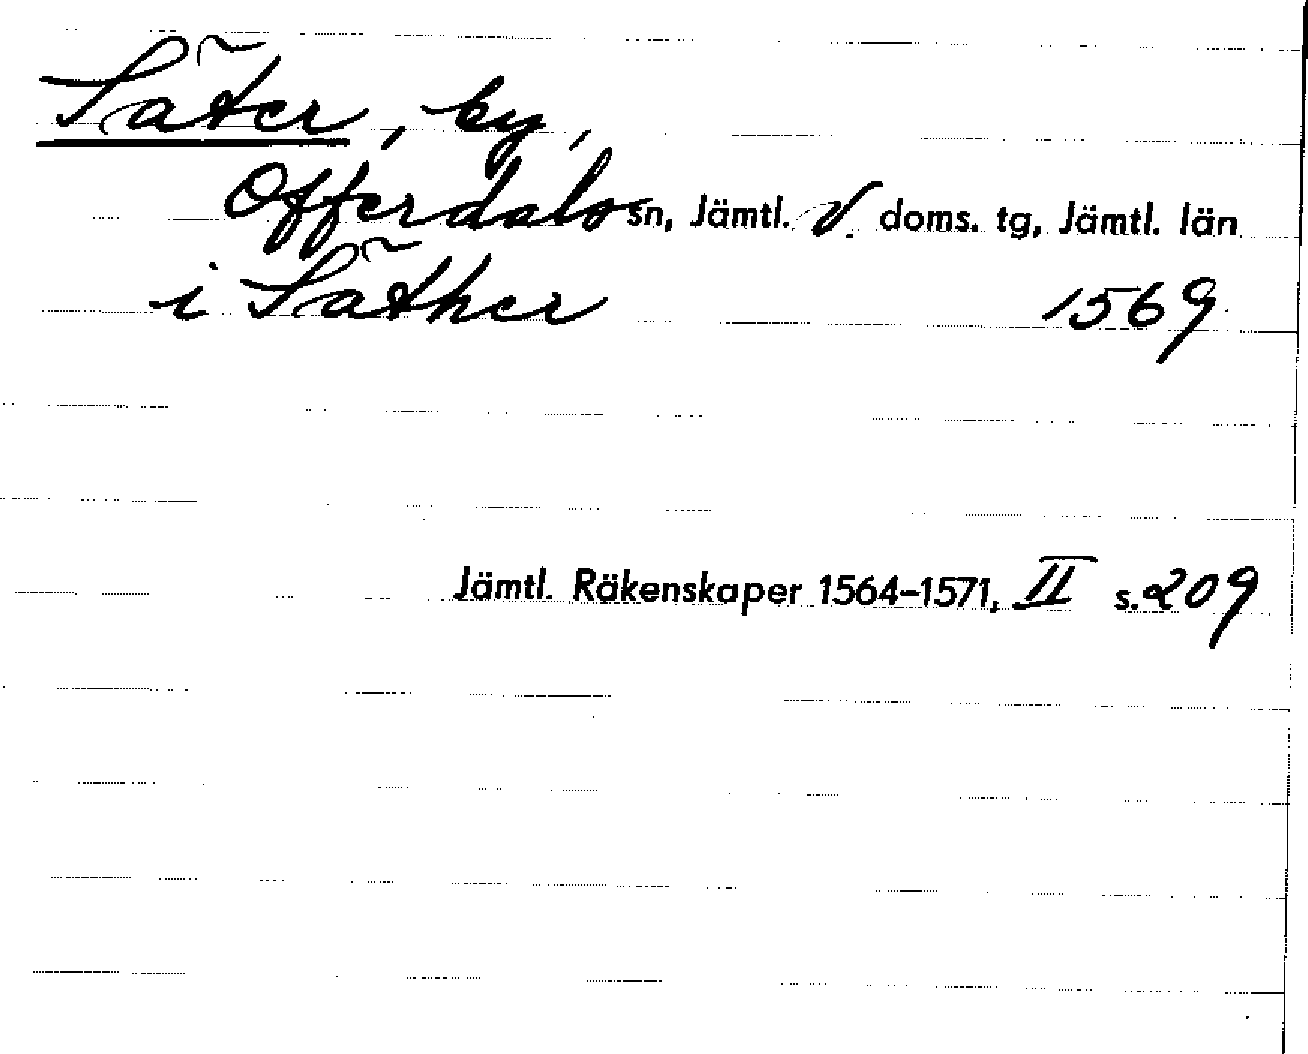 Säter, by,
Offerdals sn, Jämtl. V. doms. tg, Jämtl. län
i Säther 1569
Jämtl. Räkenskaper 1564-1571, II s. 209